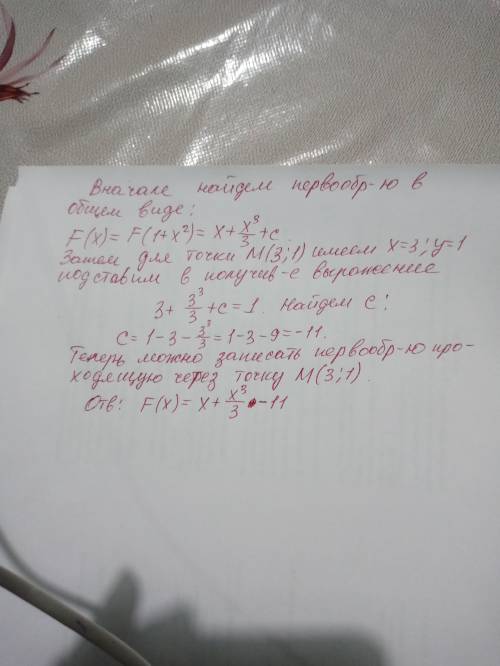 Вначале найдем первообр-ю в
общем виде:
F(x)= F(1+x²)= x+x³/3+c
Затем для точки М(3;1) имеем x=3; y=1
подставим в получив-е выражение
3+ 3³/3 +c=1. Найдем с:
c=1-3-3³/3=1-3-9=-11.
Теперь можно записать первообр-ю про-
ходящую через точку М(3;1).
Отв: F(x)= x+ x³/3 -11